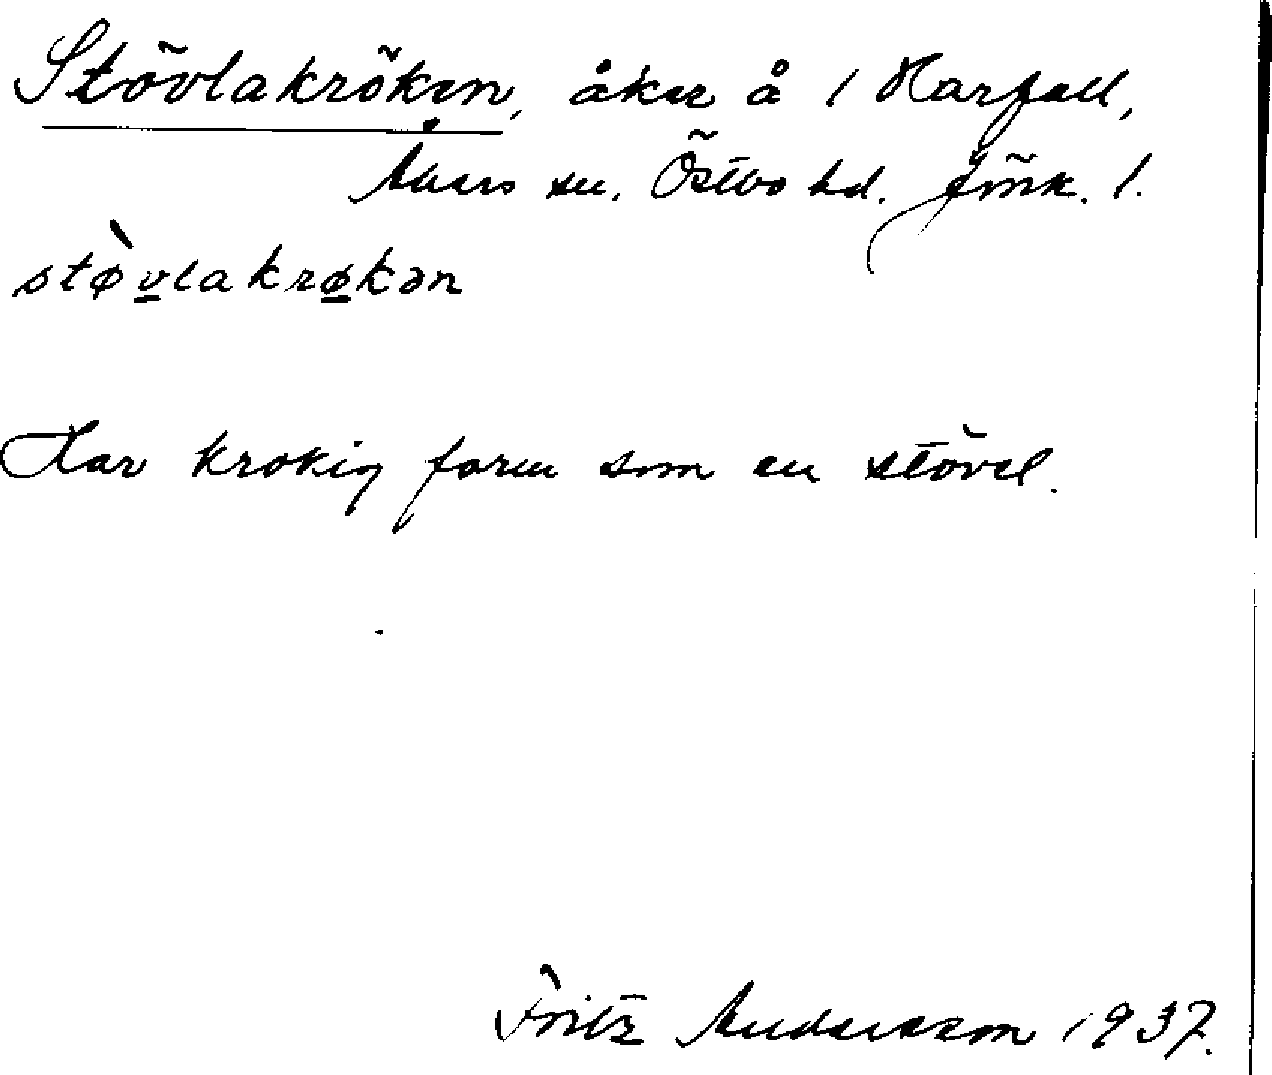 Stövlakröken, åker å 1 Harfall,
Åkers sn. Östbo hd. Jönk. l.
støvlakrøkən
Har krokig form som en stövel.
Fritz Andersson 1937.